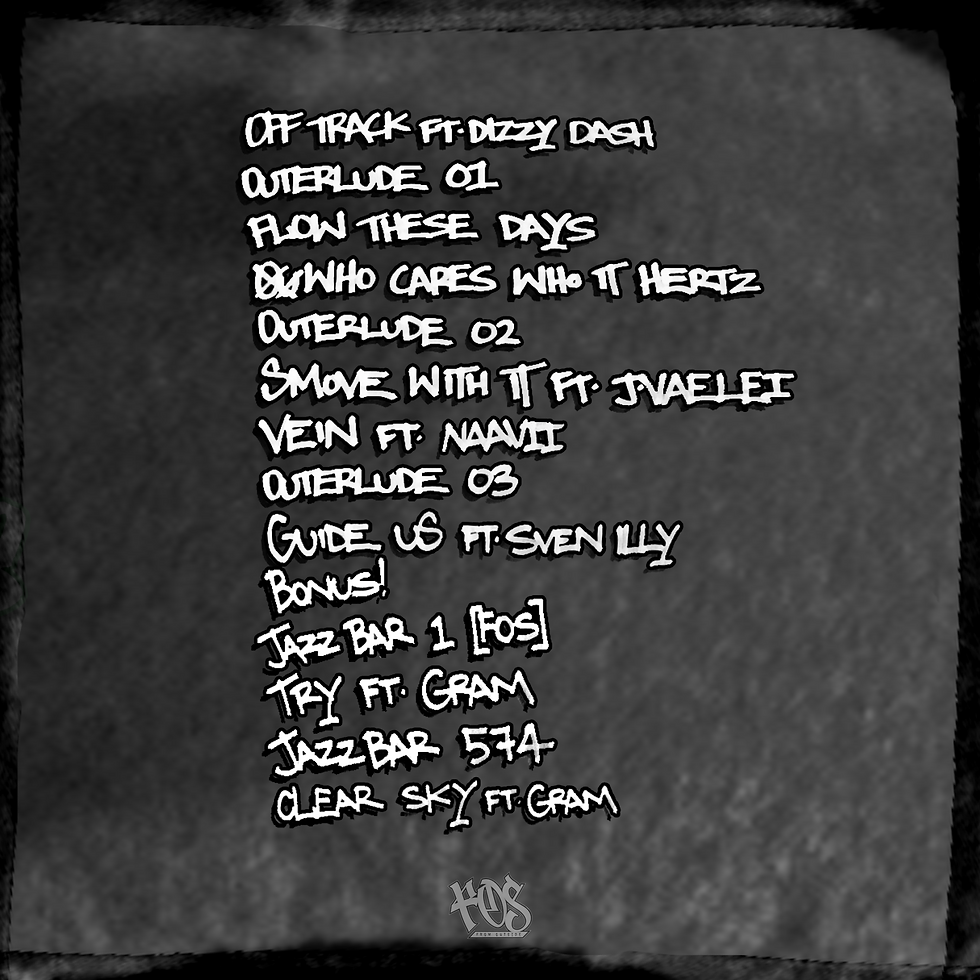 OFF TRACK FT. DIZZY DASH
OUTERLUDE 01
FLOW THESE DAYS
WHO CARES WHO IT HERTZ
OUTERLUDE 02
SMOVE WITH IT FT. J.VAELEI
VEIN FT. NAAVII
OUTERLUDE 03
GUIDE US FT. SVEN ILLY
BONUS!
JAZZ BAR 1 [FOS]
TRY FT. GRAM
JAZZ BAR 574
CLEAR SKY FT. GRAM
FOS